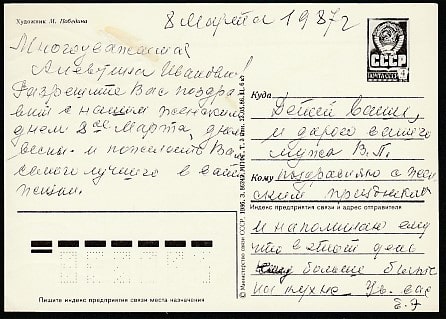 Художник И. Побидина
8 Марта 1987 г
Многоуважаемая
Алевтина Ивановна!
Разрешите Вас поздра
вить с нашим женским
днем 8ое Марта, днем
весны. и пожелать Вам
самого лучшего в вашей
жизни.
СССР
ПОЧТА
4
Куда
Детей ваших
и дорого вашего
мужа В.П.
Кому
поздравляю с женским
праздником
Индекс предприятия связи и адрес отправителя
и напоминаю ему
что в этот день
больше быть
на кухне. Ув. вас
Пишите индекс предприятия связи места назначения
© Министерство связи СССР. 1986.